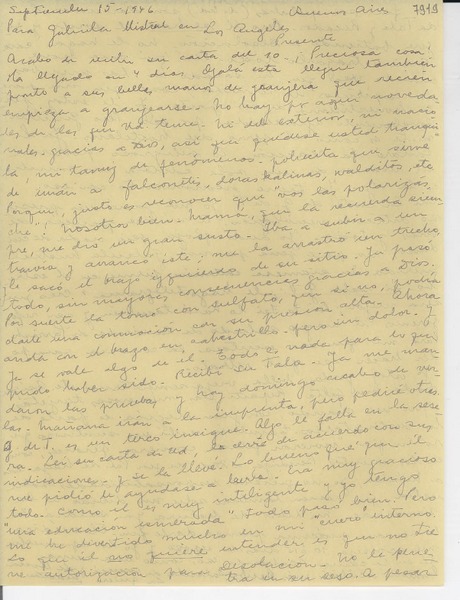 Septiembre 15-1946 Buenos Aires 7919
Para Gabriela Mistral en Los Angeles
Presente
Acabo de recibir su carta del 10-¡Preciosa com!
Ha llegado en 4 días. Ojalá esta llegue también
pronto a sus bellas manos de granjera que recién
empieza a granjearse. No hay por aquí noveda-
des de las que Ud teme. Ni del exterior, ni nacio-
nales, gracias a Dios, así que quédese usted tranqui-
la, mi de fenómenos. que sirve
de imán a falconetes, doras kalinas, walditos, etc
Porque, justo es reconocer que "vos las polarizas,
che"! Nosotros bien. Mamá, que la recuerda siem-
pre, me dió un gran susto. Iba a subir a un
tranvía y arrancó éste; me la arrastró un trecho,
le sacó el brazo izquierdo de su sitio. Ya pasó
todo, sin mayores consecuencias gracias a Dios.
Por suerte la tomó con sulfato, que si no, podría
darle una conmoción con su presión alta. Ahora
anda con el brazo en cabestrillo. pero sin dolor. Y
ya se vale algo de él. Todo es nada para lo que
pudo haber sido. Recibí su Tala. Ya me man-
daron las pruebas y hoy domingo acabo de ver-
las. Mañana irán a la imprenta, pero pediré otras.
G. de T. es un terco insigne. Algo le falta en la sese-
ra. Leí su carta de Ud, la cerré de acuerdo con sus
indicaciones. Y se la llevé. Lo bueno fué que él
me pidió le ayudase a leerla. Era muy gracioso
todo. Como él es muy inteligente y yo tengo
"una educación esmerada" todo pasó bien. Pero
me he divertido mucho en mi "cuero" interno.
Lo que él no quiere entender es que no tie
ne autorización para Desolación. No le pene-
tra en su seso. A pesar